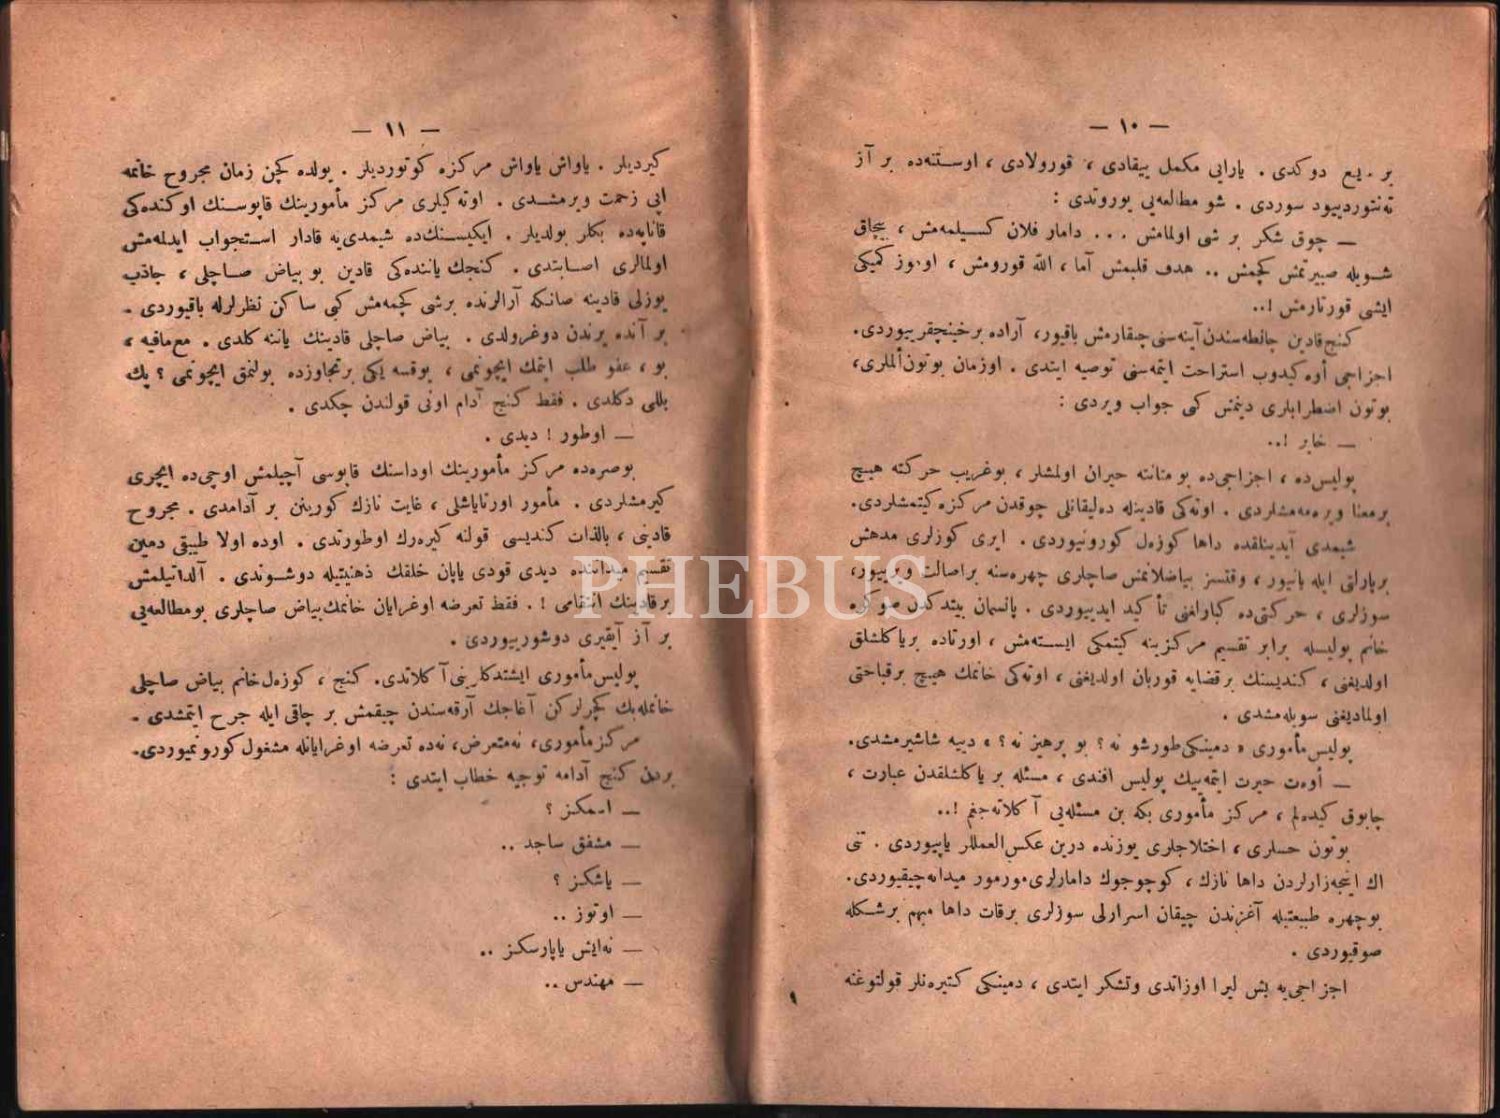 — ١٠ —
بر مایع دوكدی . یارایی مكمل ییقادی ، قورولادی ، اوستنه‌ده بر آز
ته‌نتوردییود سوردی . شو مطالعه‌یی یوروتدی :
— چوق شكر بر شی اولمامش . . . دامار فلان كسیلمه‌مش ، بیچاق
شویله صیرتمش كچمش .. هدف قلبمش آما ، الله قورومش ، اوموز كمیكی
ایشی قورتارمش !..
كنج قادین چانطه‌سندن آینه‌سنی چیقارمش باقیور، آراده برخینچقرییوردی.
اجزاجی أوه كیدوب استراحت ایتمه‌سنی توصیه ایتدی . اوزمان بوتون ألملری،
بوتون اضطرابلری دینمش كبی جواب ویردی :
— خایر !..
پولیس‌ده ، اجزاجی‌ده بو متانته حیران اولمشلر ، بوغریب حركته هیچ
برمعنا ویره‌مه‌مشلردی . اوته‌كی قادینله ده‌لیقانلی چوقدن مركزه كیتمشلردی.
شیمدی آیدینلقده داها كوزه‌ل كورونیوردی . ایری كوزلری مدهش
برپارلتی ایله یانیور ، وقتسز بیاضلانمش صاچلری چهره‌سنه براصالت ویرییور،
سوزلری ، حركتی‌ده كبارلغنی تأكید ایدییوردی . پانسمان بیتدكدن صوكره
خانم پولیسله برابر تقسیم مركزینه كیتمكی ایسته‌مش ، اورتاده بریاكلشلق
اولدیغنی ، كندیسنك برقضایه قوربان اولدیغنی ، اوته‌كی خانمك هیچ برقباحتی
اولمادیغنی سویله‌مشدی .
پولیس مأموری « دمینكی طورشو نه ؟ بو پرهیز نه ؟ » دییه شاشیرمشدی.
— أوه‌ت حیرت ایتمه‌ییك پولیس افندی ، مسئله بر یاكلشلقدن عبارت ،
چابوق كیده‌لم ، مركز مأموری بكه بن مسئله‌یی آكلاته‌جغم !..
بوتون حسلری ، اختلاجلری یوزنده درین عكس‌العمللر یاپیوردی . تنی
اك اینجه‌زارلردن داها نازك ، كوچوجوك دامارلری مورمور میدانه‌چیقیوردی.
بوچهره طبیعتیله آغزندن چیقان اسرارلی سوزلری برقات داها مبهم برشكله
صوقیوردی .
اجزاجی‌یه بش لیرا اوزاتدی وتشكر ایتدی ، دمینكی كتیره‌نلر قولتوغنه
— ١١ —
كیردیلر . یاواش یاواش مركزه كوتوردیلر . یولده كچن زمان مجروح خانمه
اپی زحمت ویرمشدی . اوته‌كیلری مركز مأمورینك قاپوسنك اوكنده‌كی
قاناپه‌ده بكلر بولدیلر . ایكیسنك‌ده شیمدی‌یه قادار استجواب ایدلمه‌مش
اولمالری اصابتدی . كنجك یاننده‌كی قادین بو بیاض صاچلی ، جاذب
یوزلی قادینه صانكه آرالرنده برشی كچمه‌مش كبی ساكن نظرلرله باقیوردی .
بر آنده یرندن دوغرولدی . بیاض صاچلی قادینك یاننه كلدی . مع‌مافیه ،
بو ، عفو طلب ایتمك ایچونمی ، یوقسه یكی برتجاوزده بولنمق ایچونمی ؟ پك
بللی دكلدی . فقط كنج آدام اونی قولندن چكدی .
— اوطور ! دیدی .
بوصره‌ده مركز مأمورینك اوداسنك قاپوسی آچیلمش اوچی‌ده ایچری
كیرمشلردی . مأمور اورتایاشلی ، غایت نازك كورینن بر آدامدی . مجروح
قادینی ، بالذات كندیسی قولنه كیره‌رك اوطورتدی . اوده اولا طبیقی دمین
تقسیم میداننده دیدی قودی یاپان خلقك ذهنیتیله دوشوندی . آلداتیلمش
برقادینك انتقامی !. فقط تعرضه اوغرایان خانمك بیاض صاچلری بومطالعه‌یی
بر آز آیقیری دوشورییوردی .
پولیس مأموری ایشتدكلرینی آكلاتدی. كنج ، كوزه‌ل خانم بیاض صاچلی
خانمله‌بك كچرلركن آغاجك آرقه‌سندن چیقمش بر چاقی ایله جرح ایتمشدی .
مركز مأموری، نه‌متعرض، نه‌ده تعرضه اوغرایانله مشغول كورونمیوردی.
بردن كنج آدامه توجیه خطاب ایتدی :
— اسمكز ؟
— مشفق ساجد ..
— یاشكز ؟
— اوتوز ..
— نه‌ایش یاپارسكز ..
— مهندس ..
PHEBUS